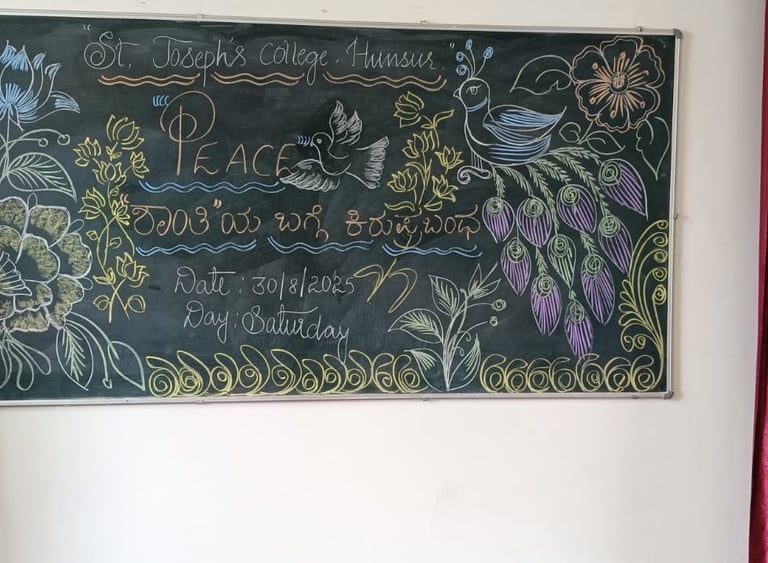 "St. Joseph's College. Hunsur"
"PEACE
"ಶಾಂತಿ"ಯ ಬಗ್ಗೆ ಕಿರುಪ್ರಬಂಧ
Date : 30/8/2025
Day : Saturday